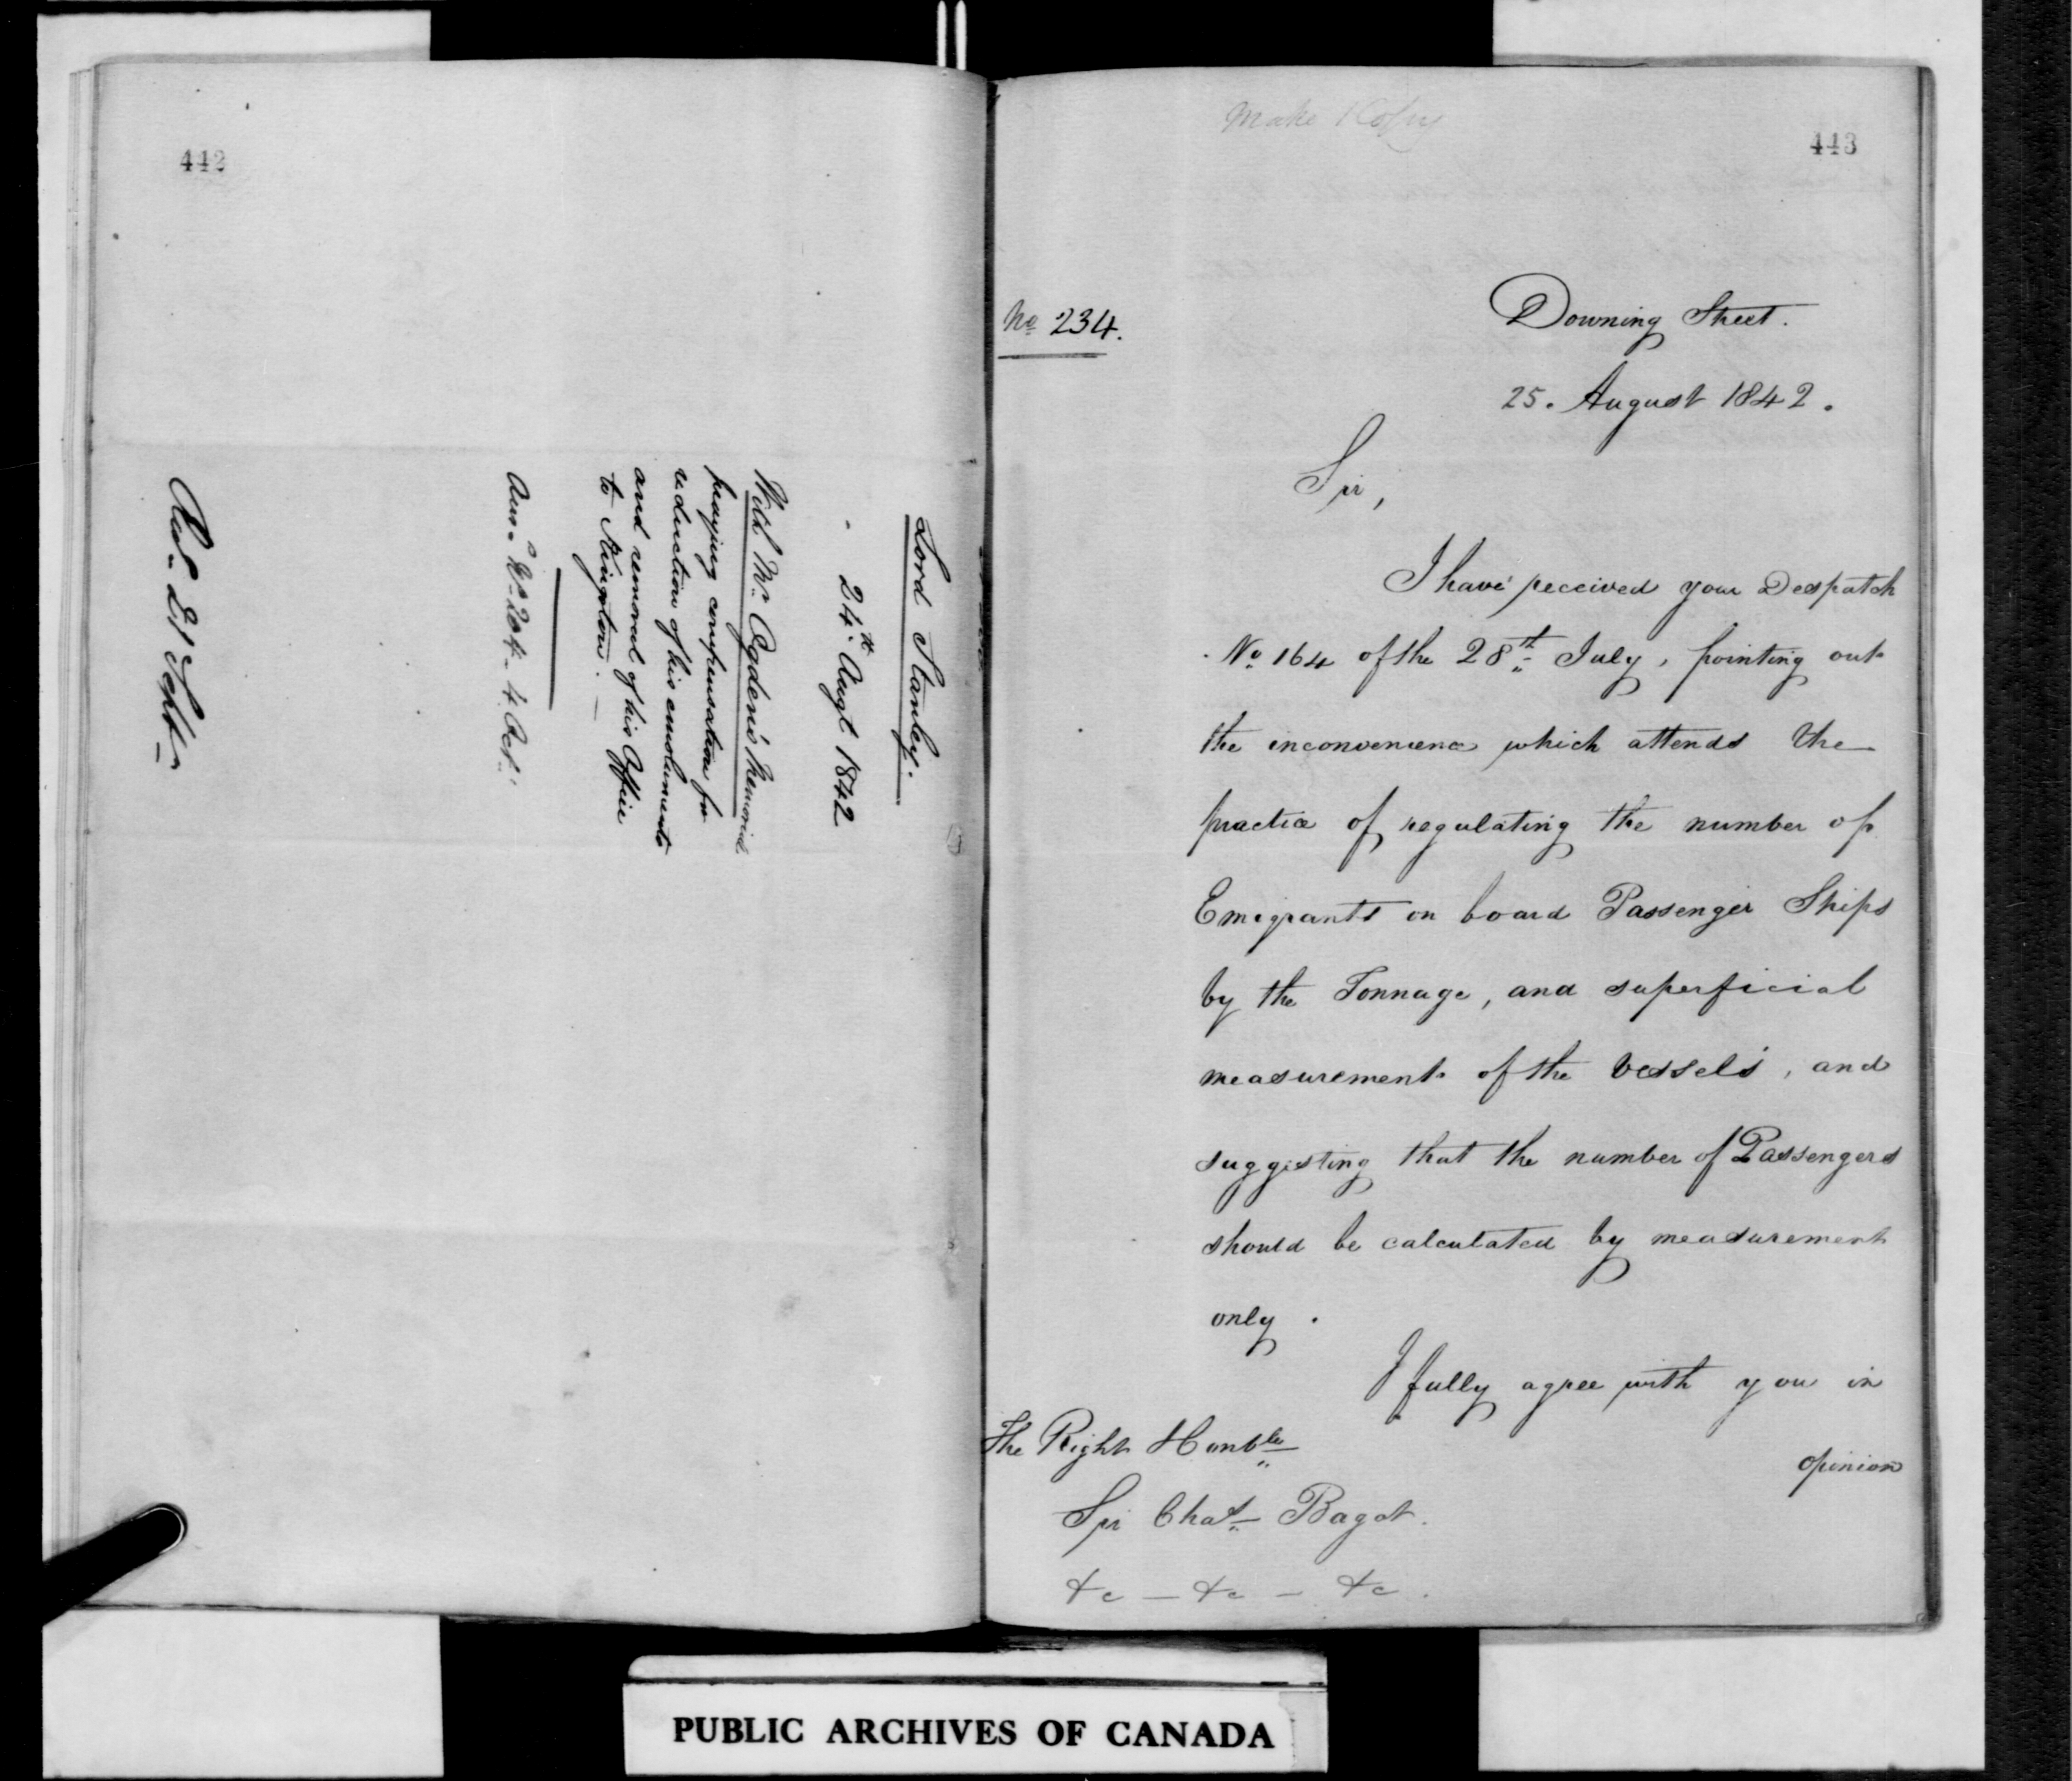 442
Lord Stanley.
24th Augt 1842
With Mr. Ogden's Memorial
praying compensation for
reduction of his emoluments
and removal of his Office
to Kingston. —
Ans. No. 204 - 4 Oct.
Recd. 21 Sept.
Make 1 Copy
443
No 234.
Downing Street.
25. August 1842.
Sir,
I have received your Despatch
No 164 of the 28th July, pointing out
the inconvenience which attends the
practice of regulating the number of
Emigrants on board Passenger Ships
by the Tonnage, and superficial
measurement of the vessels, and
suggesting that the number of Passengers
should be calculated by measurement
only.
I fully agree with you in
opinion
The Right Honble
Sir Chas Bagot.
&c — &c — &c.
PUBLIC ARCHIVES OF CANADA